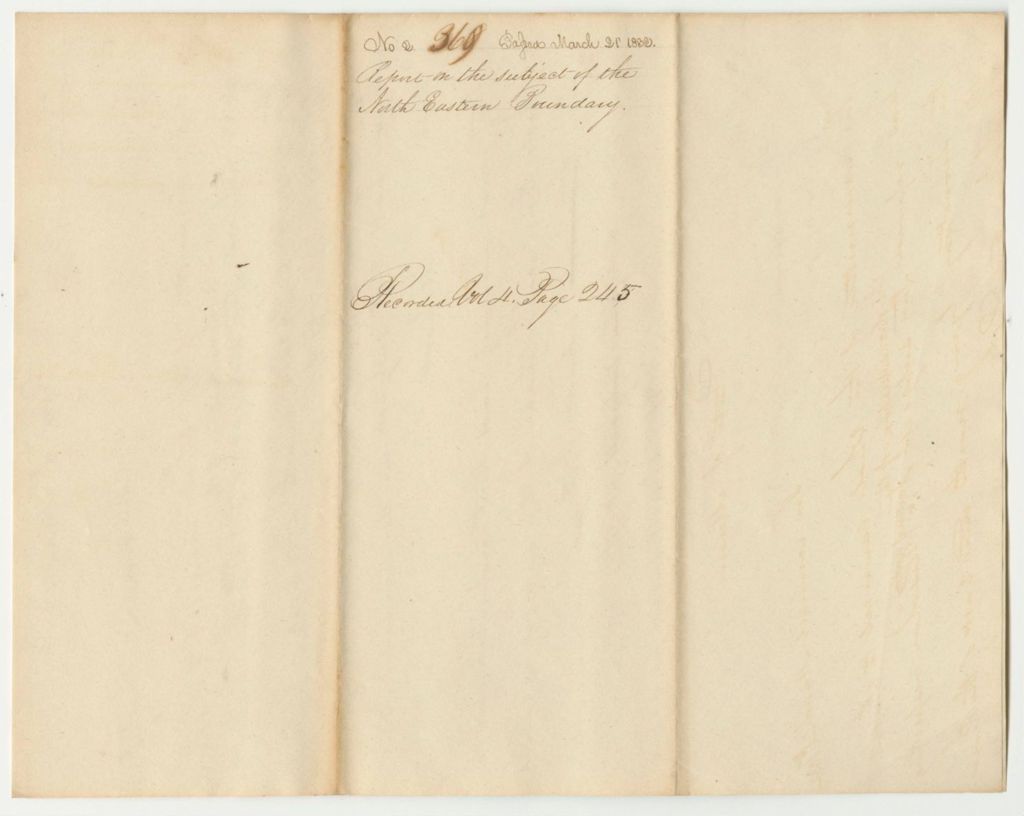 No 2 369 March 21 1832.
Report on the subject of the
North Eastern Boundary.
Recorded Vol 4. Page 245